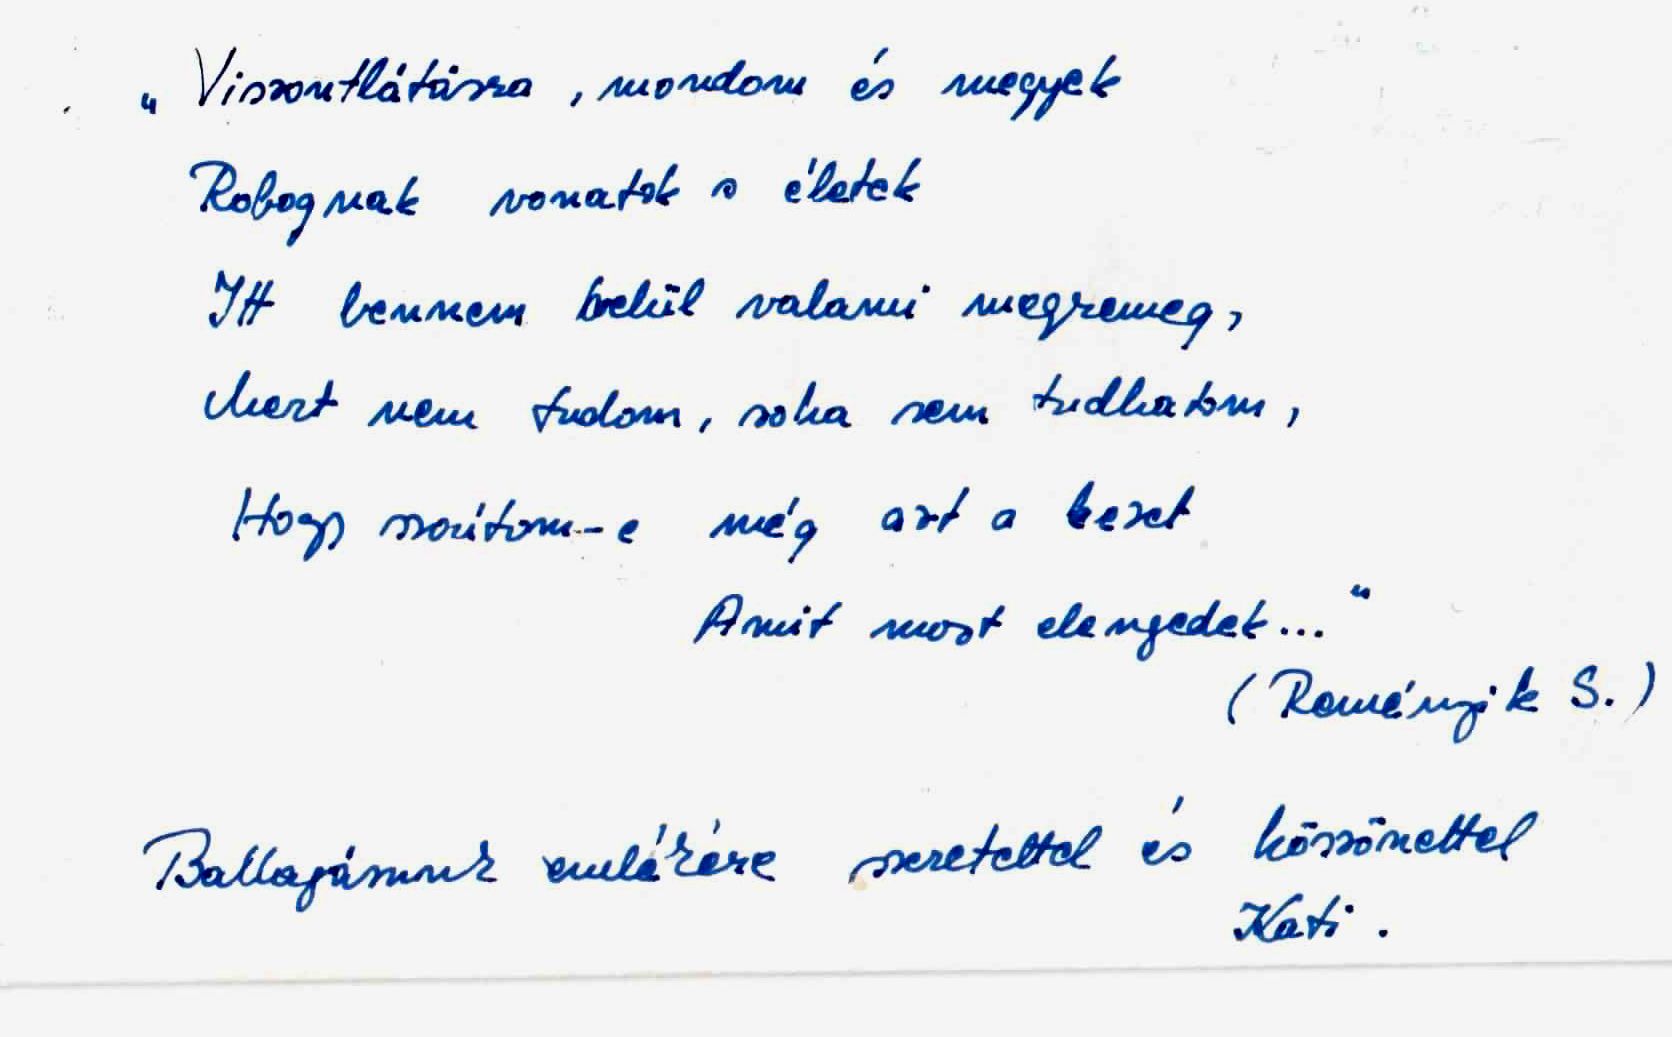 „Viszontlátásra, mondom és megyek
Robognak vonatok s életek
Itt bennem belül valami megremeg,
Mert nem tudom, soha sem tudhatom,
Hogy szorítom-e még azt a kezet
Amit most elengedek..."
(Reményik S.)
Ballagásunk emlékére szeretettel és köszönettel
Kati.